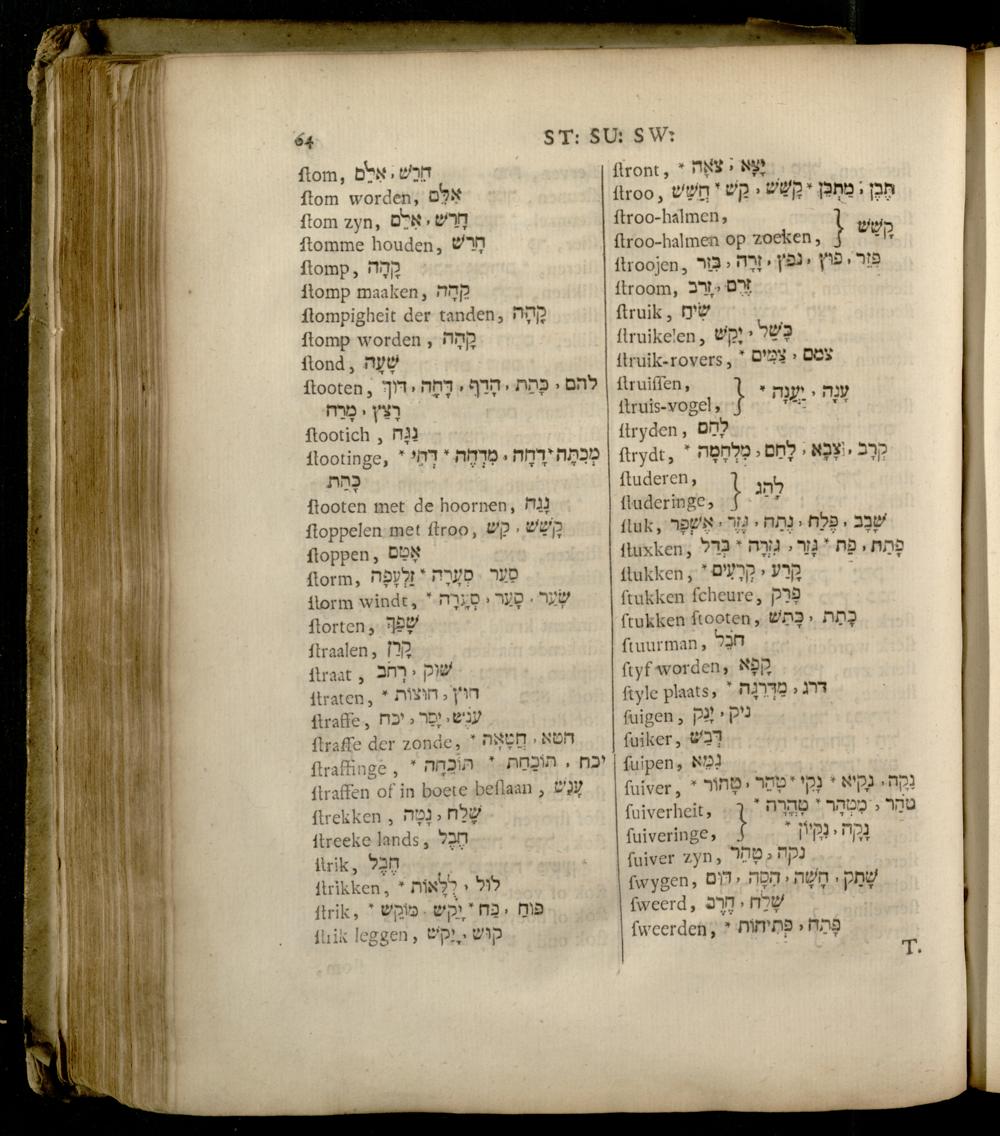 64
ST: SU: SW:
ſtom, חֵרֵשׁ, אִלֵּם
ſtom worden, אִלֵּם
ſtom zyn, חָרַשׁ, אִלֵּם
ſtomme houden, חָרַשׁ
ſtomp, קָהָה
ſtomp maaken, קָהָה
ſtompigheit der tanden, קָהָה
ſtomp worden, קָהָה
ſtond, שָׁעָה
ſtooten, להם, כָּתַת, הָדַף, דָּחָה, דּוּךְ
רָצַץ, מָרַח
ſtootich, נַגָּח
ſtootinge, מְכִתָּה * דָּחָה, מִדְחֶה * דְּחִי *
כָּתַת
ſtooten met de hoornen, נָגַח
ſtoppelen met ſtroo, קָשַׁשׁ, קַשׁ
ſtoppen, אָטַם
ſtorm, סַעַר סְעָרָה * זַלְעָפָה
ſtorm windt, שַׂעַר, סָעַר, סְעָרָה *
ſtorten, שָׁפַךְ
ſtraalen, קָרַן
ſtraat, שׁוּק, רְחֹב
ſtraten, חוּץ, חוּצוֹת *
ſtraffe, עֹנֶשׁ, יָסַר, יכח
ſtraffe der zonde, חטא, חֲטָאָה *
ſtraffinge, יכח, תּוֹכַחַת * תּוֹכֵחָה *
ſtraffen of in boete beſlaan, עָנַשׁ
ſtrekken, שָׁלַח, נָטָה
ſtreeke lands, חֶבֶל
ſtrik, חֶבֶל
ſtrikken, לוּל, לֻלָאוֹת *
ſtrik, פּוּחַ, פַּח * יָקַשׁ מוֹקֵשׁ *
ſtrik leggen, קוּשׁ, יָקַשׁ
ſtront, יָצָא, צֹאָה *
ſtroo, תֶּבֶן, מַתְבֵּן * קָשַׁשׁ, קַשׁ * חֲשַׁשׁ
ſtroo-halmen,
ſtroo-halmen op zoeken, } קָשַׁשׁ
ſtroojen, פִּזַּר, פּוּץ, נפץ, זָרָה, בִּזַּר
ſtroom, זֶרֶם, זָרַב
ſtruik, שִׂיחַ
ſtruikelen, כָּשַׁל, יָקַשׁ
ſtruik-rovers, צמם, צַמִּים *
ſtruiſſen,
ſtruis-vogel, } עָנָה, יַעֲנָה *
ſtryden, לָחַם
ſtrydt, קְרָב, צָבָא, לָחַם, מִלְחָמָה *
ſtuderen,
ſtuderinge, } לָהַג
ſtuk, שָׁבַב, פֶּלַח, נֵתַח, גֶּזֶר, אֶשְׁפָּר
ſtuxken, פָּתַת, פַּת * גָּזַר, גִּזְרָה * בְּדַל
ſtukken, קָרַע, קְרָעִים *
ſtukken ſcheure, פָּרַק
ſtukken ſtooten, כָּתַת, כָּתַשׁ
ſtuurman, חֹבֵל
ſtyf worden, קָפָא
ſtyle plaats, דרג, מַדְרֵגָה *
ſuigen, ניק, יָנַק
ſuiker, דְּבַשׁ
ſuipen, גָּמָא
ſuiver, נָקָה, נָקִיא * נָקִי * טָהֵר, טָהוֹר *
ſuiverheit, טֹהַר, מִטְהָר * טָהֳרָה *
ſuiveringe, } נָקָה, נִקָּיוֹן *
ſuiver zyn, נקה, טָהֵר
ſwygen, שָׁתַק, חָשָׁה, הִסָּה, דּוּם
ſweerd, שֶׁלַח, חֶרֶב
ſweerden, פָּתַח, פְּתִיחוֹת *
T.